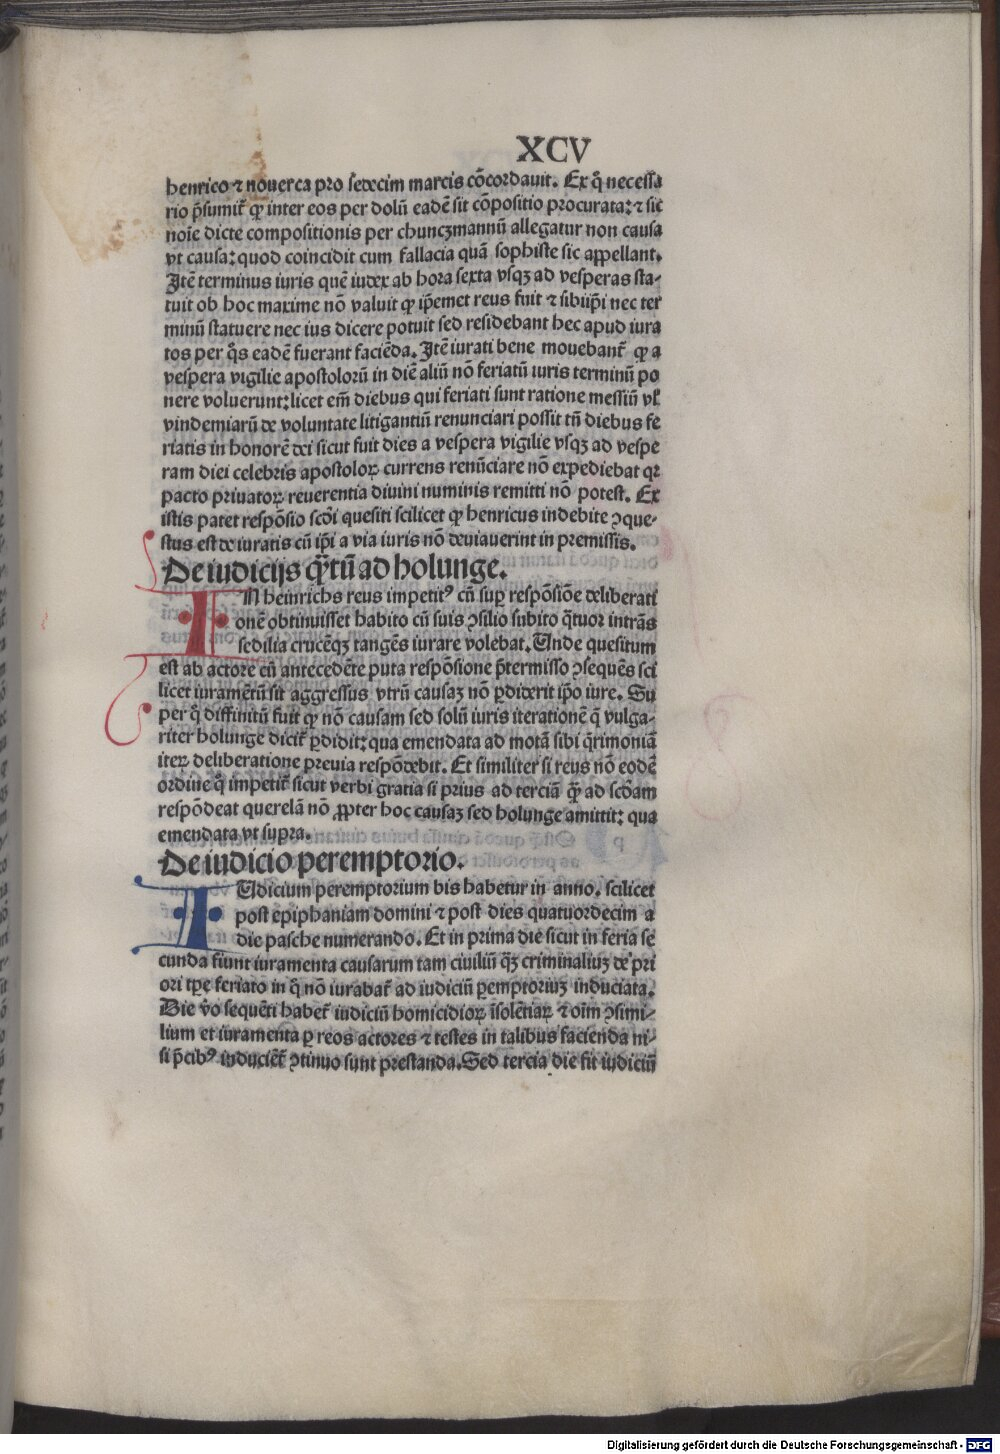 XCV
henrico ⁊ nouerca pro sedecim marcis cõcordauit. Ex q̊ necessa
rio p̃sumit᷑ ꝙ inter eos per dolũ eadẽ sit cõpositio procurata: ⁊ sic
noĩe dicte compositionis per chunczmannũ allegatur non causa
vt causa: quod coincidit cum fallacia quã sophiste sic appellant.
Itẽ terminus iuris quẽ iudex ab hora sexta vsqꝫ ad vesperas sta-
tuit ob hoc maxime nõ valuit ꝙ ip̃emet reus fuit ⁊ sibiip̃i nec ter
minũ statuere nec ius dicere potuit sed residebant hec apud iura
tos per q̊s eadẽ fuerant faciẽda. Itẽ iurati bene mouebant᷑ ꝙ a
vespera vigilie apostolorũ in diẽ aliũ nõ feriatũ iuris terminũ po
nere voluerunt: licet em̃ diebus qui feriati sunt ratione messiũ vl̕
vindemiarũ de voluntate litigantiũ renunciari possit tñ diebus fe
riatis in honorẽ dei sicut fuit dies a vespera vigilie vsqꝫ ad vespe
ram diei celebris apostoloꝝ currens renũciare nõ expediebat qꝛ
pacto priuatoꝝ reuerentia diuini numinis remitti nõ potest. Ex
istis patet respõsio scd̃i quesiti scilicet ꝙ henricus indebite ↄque-
stus est de iuratis cũ ip̃i a via iuris nõ deuiauerint in premissis.
De iudicijs q̃ꝫtũ ad holunge.
IN heinrichs reus impetitꝰ cũ suꝑ respõsiõe deliberati
onẽ obtinuisset habito cũ suis ↄsilio subito q̃tuor intrãs
sedilia crucẽqꝫ tangẽs iurare volebat. Unde quesitum
est ab actore cũ antecedẽte puta respõsione p̃termisso ↄsequẽs sci
licet iuramẽtũ sit aggressus vtrũ causaꝫ nõ ꝑdiderit ip̃o iure. Su
per q̊ diffinitũ fuit ꝙ nõ causam sed solũ iuris iterationẽ q̃ vulga-
riter holunge dicit᷑ ꝑdidit: qua emendata ad motã sibi q̃rimoniã
iteꝝ deliberatione preuia respõdebit. Et similiter si reus nõ eodẽ
ordine q̊ impetit᷑ sicut verbi gratia si prius ad terciã q̃ꝫ ad scd̃am
respõdeat querelã nõ ꝓpter hoc causaꝫ sed holunge amittit: qua
emendata vt supra.
De iudicio peremptorio.
IUdicium peremptorium bis habetur in anno. scilicet
post epiphaniam domini ⁊ post dies quatuordecim a
die pasche numerando. Et in prima die sicut in feria se
cunda fiunt iuramenta causarum tam ciuiliũ q̃ꝫ criminaliuꝫ de pri
ori tꝑe feriato in q̊ nõ iurabat᷑ ad iudiciũ ꝑemptoriuꝫ induciata.
Die v̊o sequẽti habet᷑ iudiciũ homicidioꝝ ĩsolẽtiaꝝ ⁊ oĩm ↄsimi-
lium et iuramenta ꝑ reos actores ⁊ testes in talibus facienda ni-
si p̃cibꝰ induciẽt᷑ ↄtinuo sunt prestanda. Sed tercia die fit iudiciũ
Digitalisierung gefördert durch die Deutsche Forschungsgemeinschaft - DFG